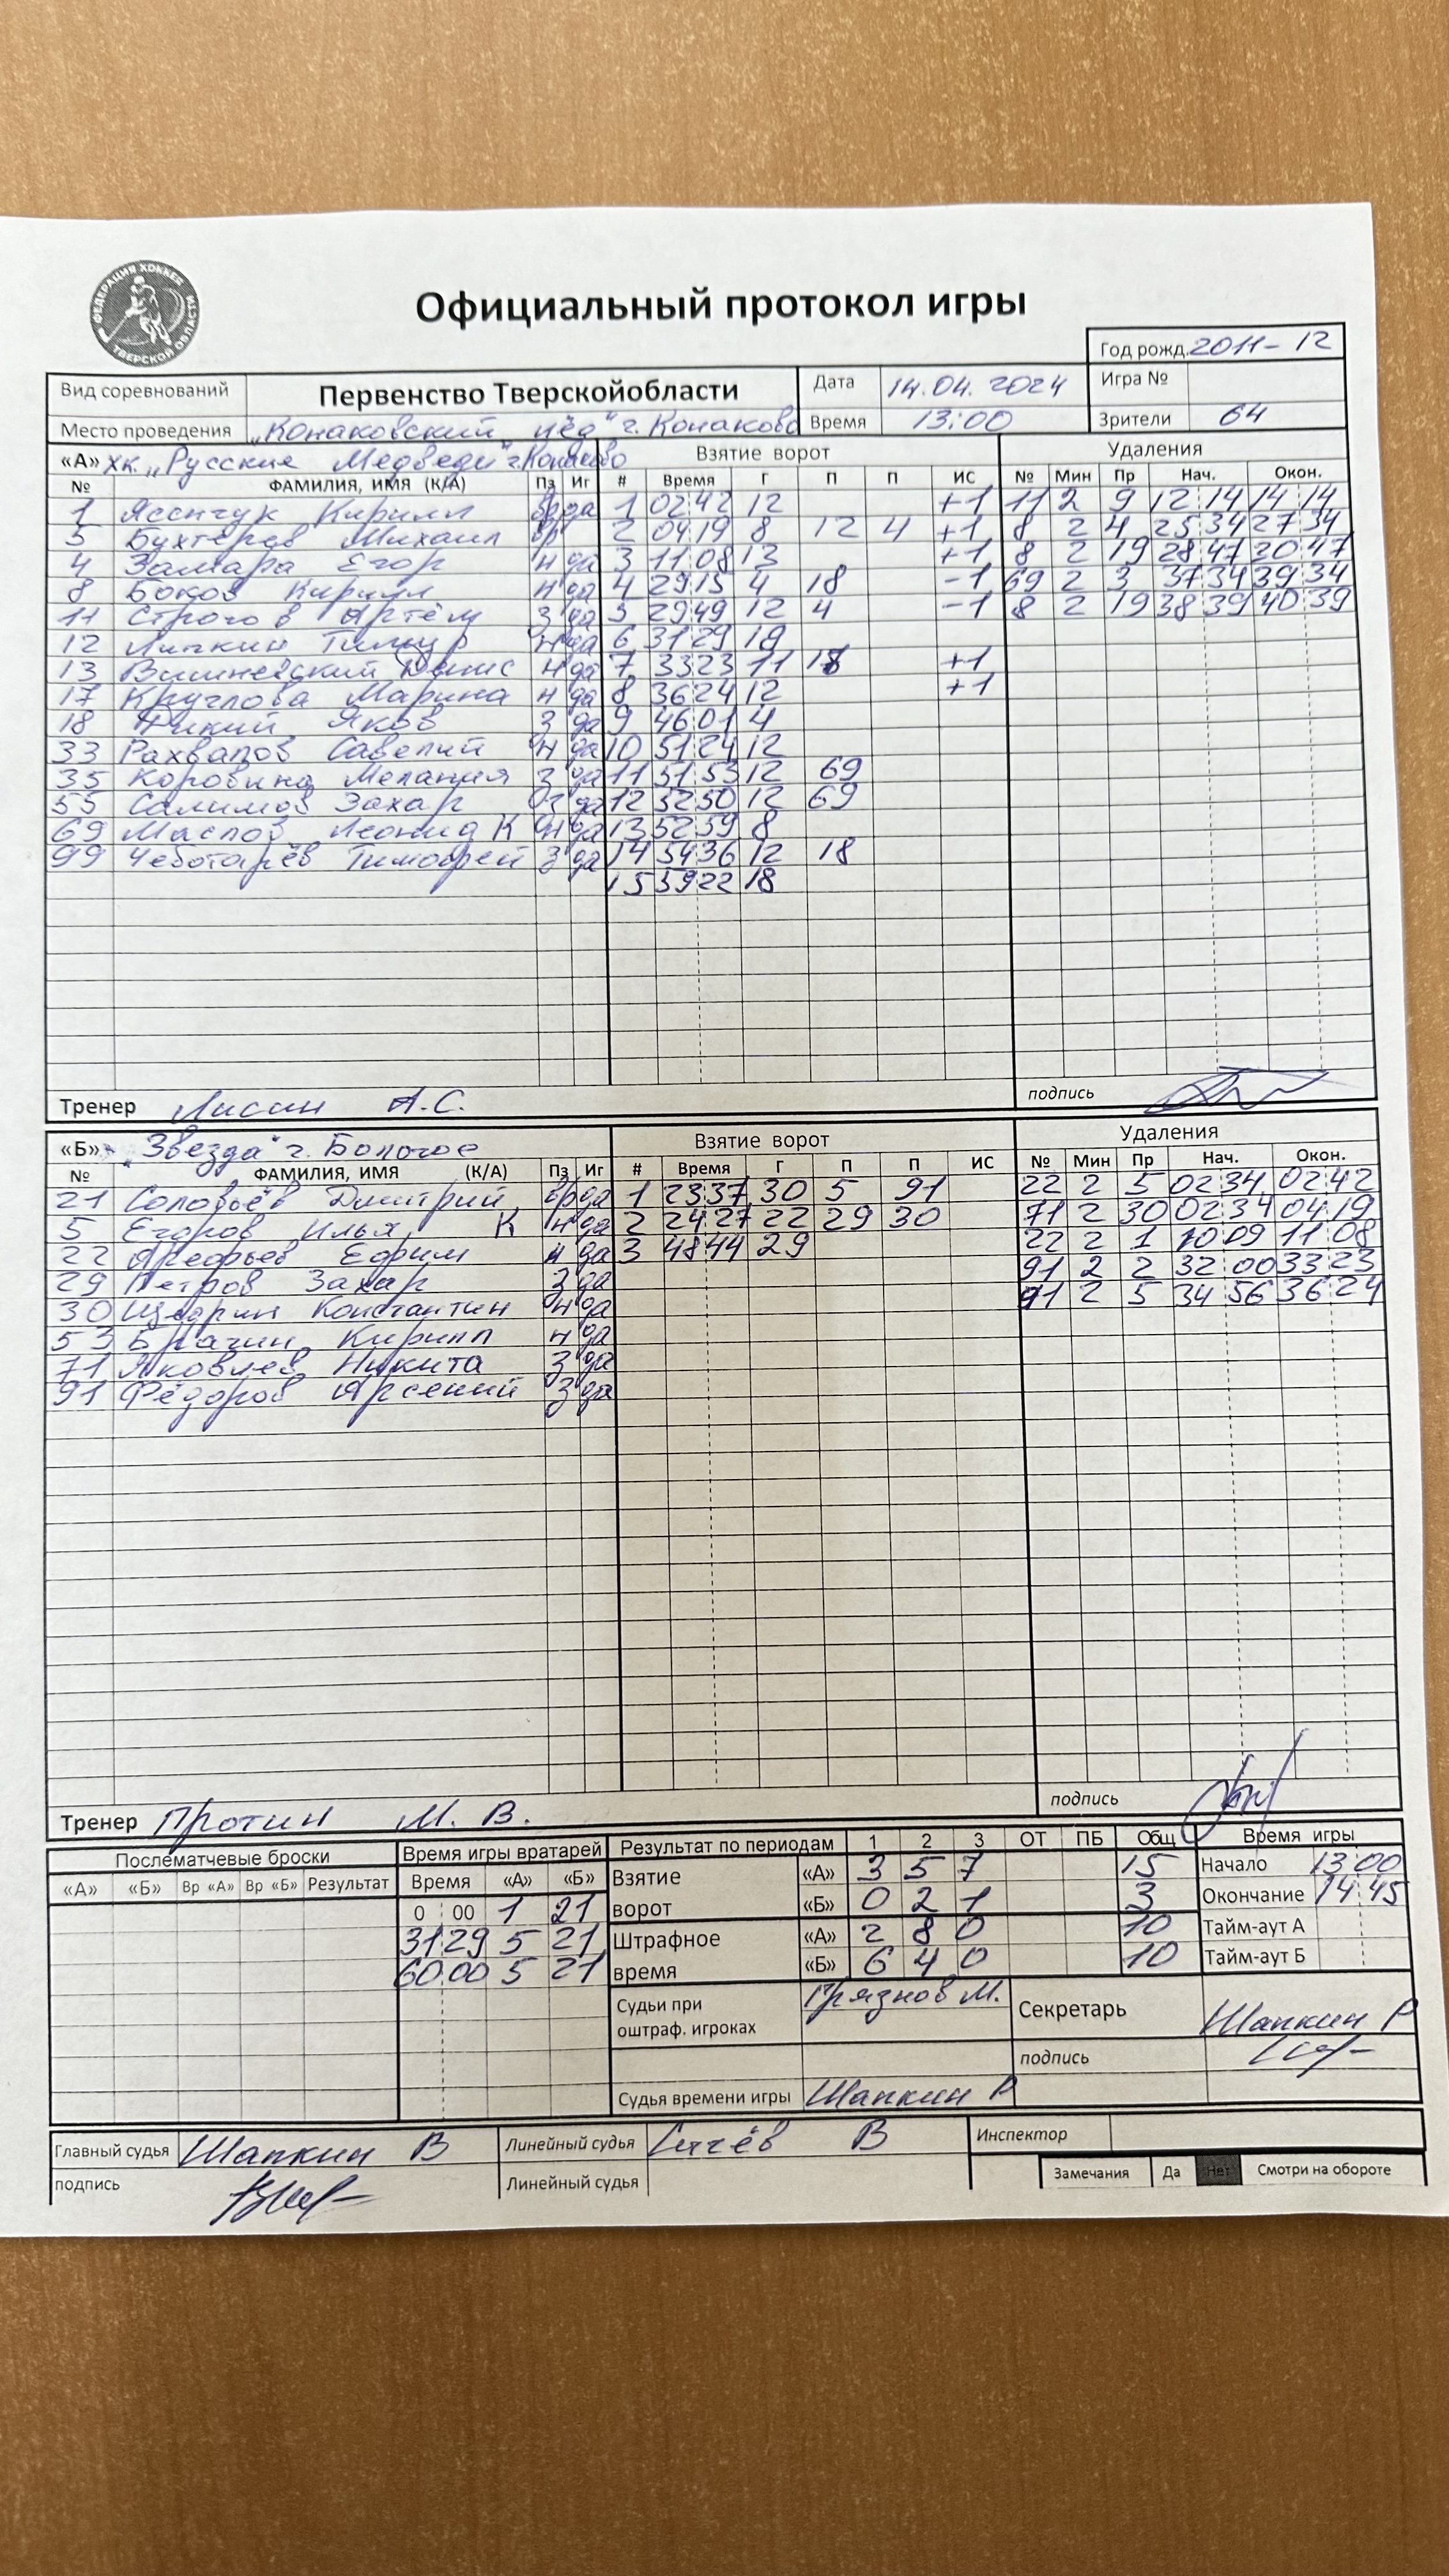 ФЕДЕРАЦИЯ ХОККЕЯ ТВЕРСКОЙ ОБЛАСТИ
Официальный протокол игры
Год рожд. 2011-12
Вид соревнований Первенство Тверскойобласти Дата 14.04.2024 Игра №
Место проведения „Конаковский лёд" г. Конаково Время 13:00 Зрители 64
«А» ХК „Русские Медведи" г. Конаково Взятие ворот Удаления
№ ФАМИЛИЯ, ИМЯ (К/А) Пз Иг # Время Г П П ИС № Мин Пр Нач. Окон.
1 Ясенчук Кирилл вр да 1 02 42 12 +1 11 2 9 12 14 14 14
5 Бухтерев Михаил вр 2 04 19 8 12 4 +1 8 2 4 25 34 27 34
4 Замара Егор н да 3 11 08 13 +1 8 2 19 28 47 30 47
8 Боков Кирилл н да 4 29 15 4 18 -1 69 2 3 37 34 39 34
11 Строгов Артём з да 5 29 49 12 4 -1 8 2 19 38 39 40 39
12 Липкин Тимур н да 6 31 29 18
13 Вишневский Денис н да 7 33 23 11 18 +1
17 Круглова Марина н да 8 36 24 12 +1
18 Дикий Яков з да 9 46 01 4
33 Рахвалов Савелий н да 10 51 24 12
35 Коровина Мелания з да 11 51 53 12 69
55 Салимов Захар з да 12 52 50 12 69
69 Маслов Леонид К н да 13 52 59 8
99 Чеботарёв Тимофей з да 14 54 36 12 18
15 59 22 18
Тренер Лисин А.С. подпись
«Б» „Звезда" г. Бологое Взятие ворот Удаления
№ ФАМИЛИЯ, ИМЯ (К/А) Пз Иг # Время Г П П ИС № Мин Пр Нач. Окон.
21 Соловьёв Дмитрий вр да 1 23 37 30 5 91 22 2 5 02 34 02 42
5 Егоров Илья К н да 2 24 27 22 29 30 71 2 30 02 34 04 19
22 Арефьев Ефим н да 3 48 44 29 22 2 1 10 09 11 08
29 Петров Захар з да 91 2 2 32 00 33 23
30 Щедрин Константин н да 91 2 5 34 56 36 24
53 Брагин Кирилл н да
71 Яковлев Никита з да
91 Фёдоров Арсений з да
Тренер Протин М. В. подпись
Послематчевые броски Время игры вратарей Результат по периодам 1 2 3 ОТ ПБ Общ Время игры
«А» «Б» Вр «А» Вр «Б» Результат Время «А» «Б» Взятие «А» 3 5 7 15 Начало 13 00
0 00 1 21 ворот «Б» 0 2 1 3 Окончание 14 45
31 29 5 21 Штрафное «А» 2 8 0 10 Тайм-аут А
60 00 5 21 время «Б» 6 4 0 10 Тайм-аут Б
Судьи при оштраф. игроках Грязнов М. Секретарь Шапкин Р
подпись
Судья времени игры Шапкин Р
Главный судья Шапкин В Линейный судья Сычёв В Инспектор
подпись Линейный судья Замечания Да Нет Смотри на обороте